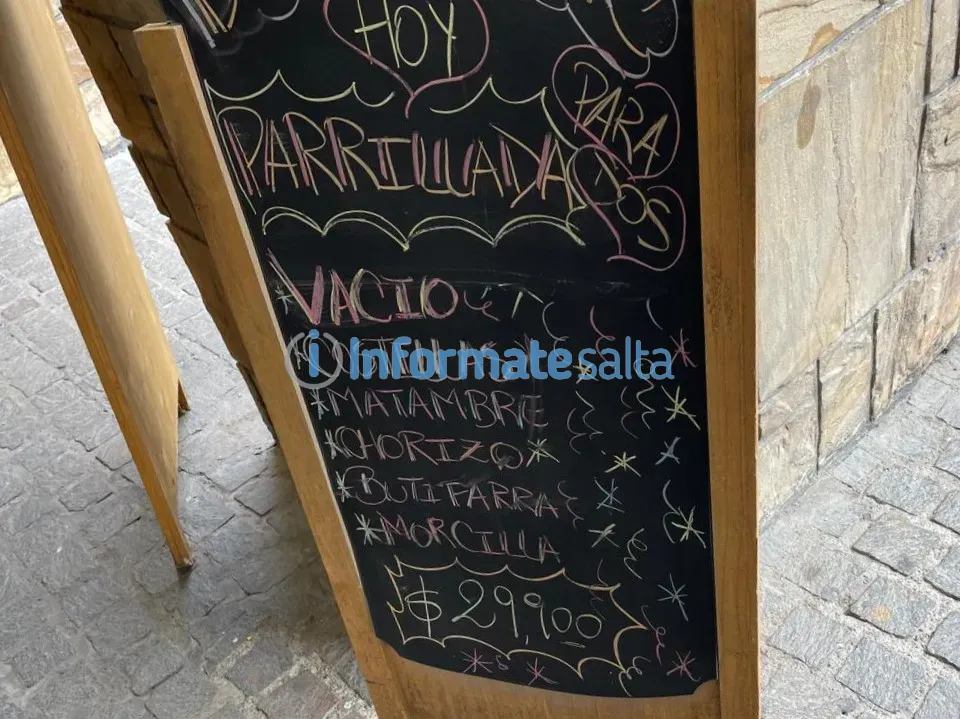 HOY
PARRILLADA
PARA
DOS
*VACIO
Informatesalta
*MATAMBRE
*CHORIZO
*BUTIFARRA
*MORCILLA
$29,900